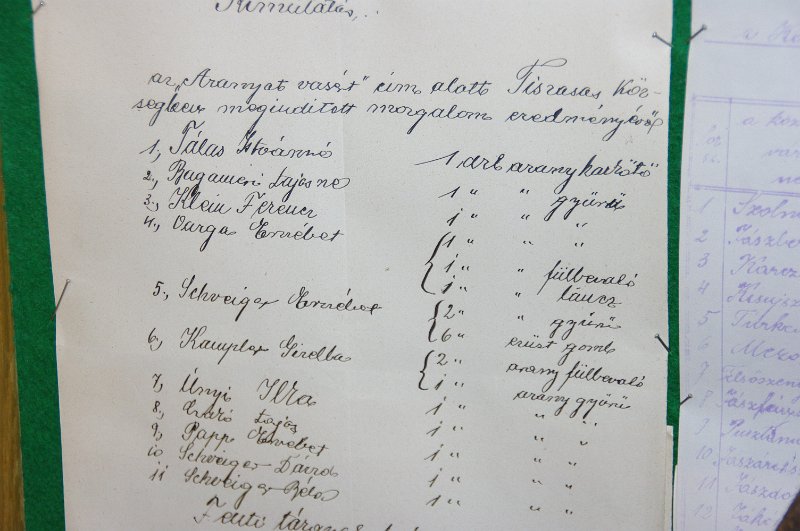 Kimutatás,
az „Aranyat vasért" cím alatt Tiszasas köz-
ségben megindított mozgalom eredményéről
1, Tálas Istvánné 1 drb arany karkötő
2., Bagameri Lajosné 1 " " gyűrű
3., Klein Ferencz 1 " " "
4., Varga Erzsébet 1 " " "
1 " " fülbevaló
1 " " láncz
5., Schveiger Erzsébet 2 " " gyűrű
6 " ezüst gomb
6, Kampler Gizella 2 " arany fülbevaló
1 " arany gyűrű
7, Únyi Ilka 1 " " "
8, Lajos 1 " " "
9, Papp Erzsébet 1 " " "
10 Schveiger Dávid 1 " " "
11 Schveiger Béla 1 " " "
Fenti
a
1 Szoln
2 Jászbe
3 Karcz
4 Kisújsz
5 Túrke
6 Mező
7 Jell
8 Jászfénysz
9
10 Jászárokszá
11 Jászdó
12 Jáké